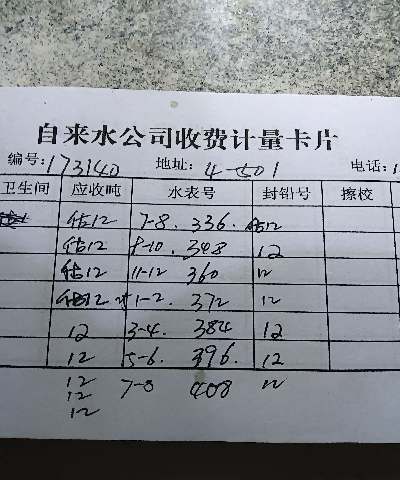 自来水公司收费计量卡片
编号:173140 地址: 4-501 电话:1
卫生间 应收吨 水表号 封铅号 擦校
估12 7-8. 336. 估12
估12 8-10. 348 12
估12 11-12 360 12
估12 1-2. 372 12
12 3-4. 384 12
12 5-6. 396. 12
12 7-8 408 12
12
12